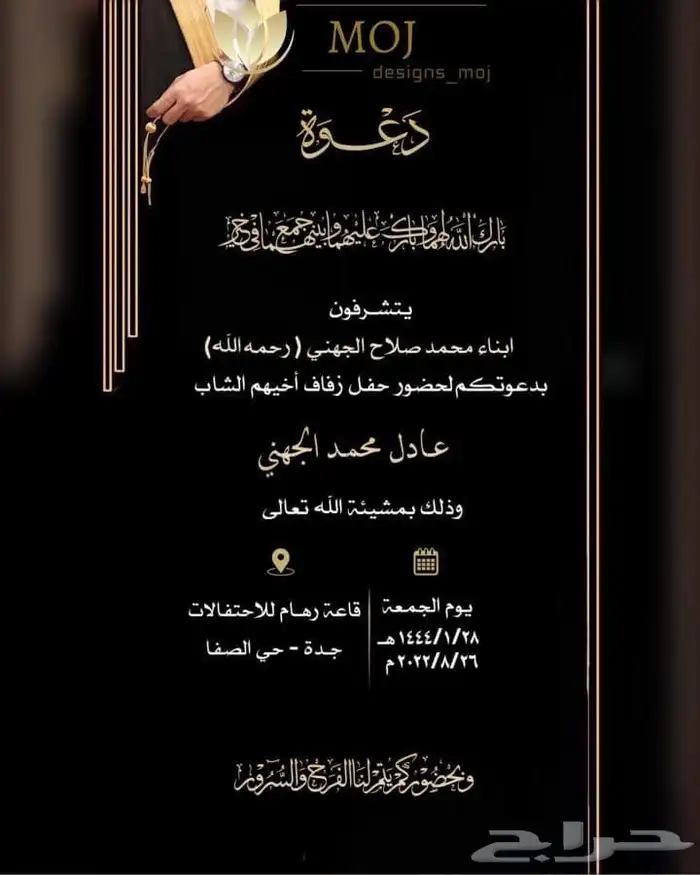 MOJ
designs_moj
دَعْوَة
بَارَكَ اللَّهُ لَهُمَا وَبَارَكَ عَلَيْهِمَا وَجَمَعَ بَيْنَهُمَا فِي خَيْر
يتشرفون
ابناء محمد صلاح الجهني (رحمه الله)
بدعوتكم لحضور حفل زفاف أخيهم الشاب
عادل محمد الجهني
وذلك بمشيئة الله تعالى
يوم الجمعة
١٤٤٤/١/٢٨هـ
٢٠٢٢/٨/٢٦م
قاعة رهام للاحتفالات
جدة - حي الصفا
وَبِحُضُورِكُمْ يَتِمُّ لَنَا الفَرَحُ وَالسُّرُورُ
حراج